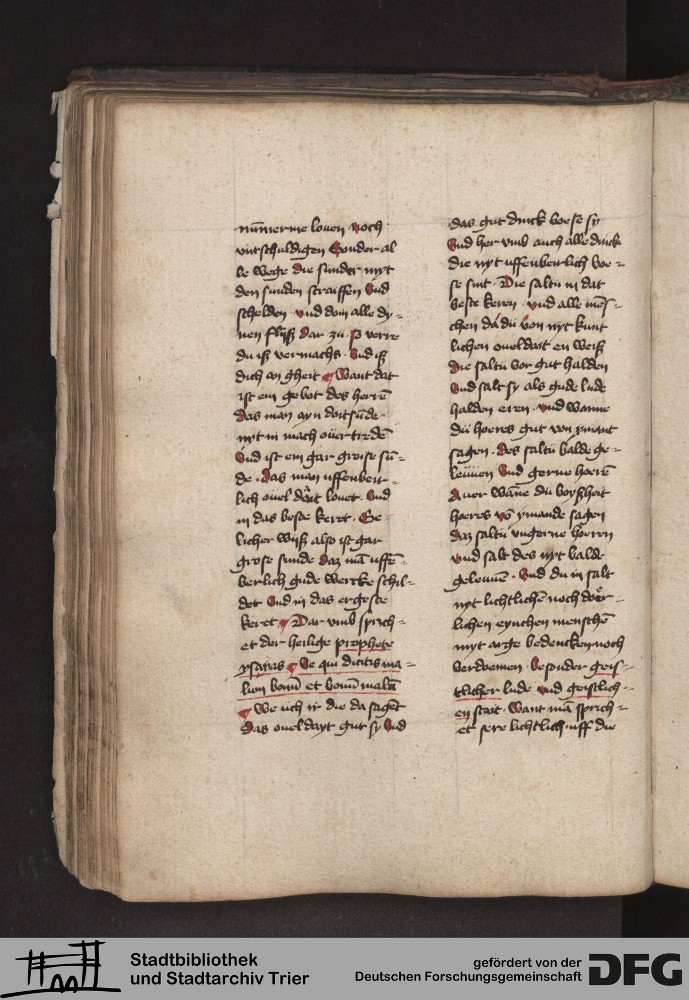 nūmerme louen noch
vntschuldigen Sonder al
le wege die sunder nyt
den sunden straiffen vnd
schelden · vnd dom alle dy-
nen flyß dar zu · so verre
du iß vermachs · vnd iß
dich an gheit Want dat
ist ein gebot des herrē
das man ayn doitsūde
nyt in mach ouertredē
vnd ist ein gar groise sū-
de · das man uffenber-
lich ouel dait louet · vnd
in das beste keret · Ge-
licher wyß also ist gar
grose sunde daz mā uffē-
berlich gude wercke schil-
det vnd in das ergeste
keret Dar vmb sprich-
et der heilige prophete
ysaias Ve qui dicitis ma-
lum bonū et bonū malū
We uch ir die da sagēt
das ouel dayt gut sy vnd
das gut dinck boese sy
vnd her vmb auch alle dinck
die nyt uffenberlich boe-
se sint · Die saltu in dat
beste keren · vnd alle mēs-
chen da du von nyt kunt
lichen oueldait en weiß
die saltu vor gut halden
vnd salt sy als gude lude
halden eren · vnd wanne
du hoeres gut von ymant
sagen · des saltu balde ge-
leuuen vnd gerne hoerē
Auer wāne du boyßheit
hoeres vō ymande sagen
daz saltu vngerne hoeren
vnd salt des nyt balde
geleuuen · vnd du in salt
nyt lichtlichē noch doer-
lichen eynchen menschē
nyt arge bedencken noch
verdoemen · besonder geis-
tlicher lude vnd geistlich-
en stait · Want mā sprich-
et sere lichtlich uff die
Stadtbibliothek
und Stadtarchiv Trier
gefördert von der
Deutschen Forschungsgemeinschaft
DFG